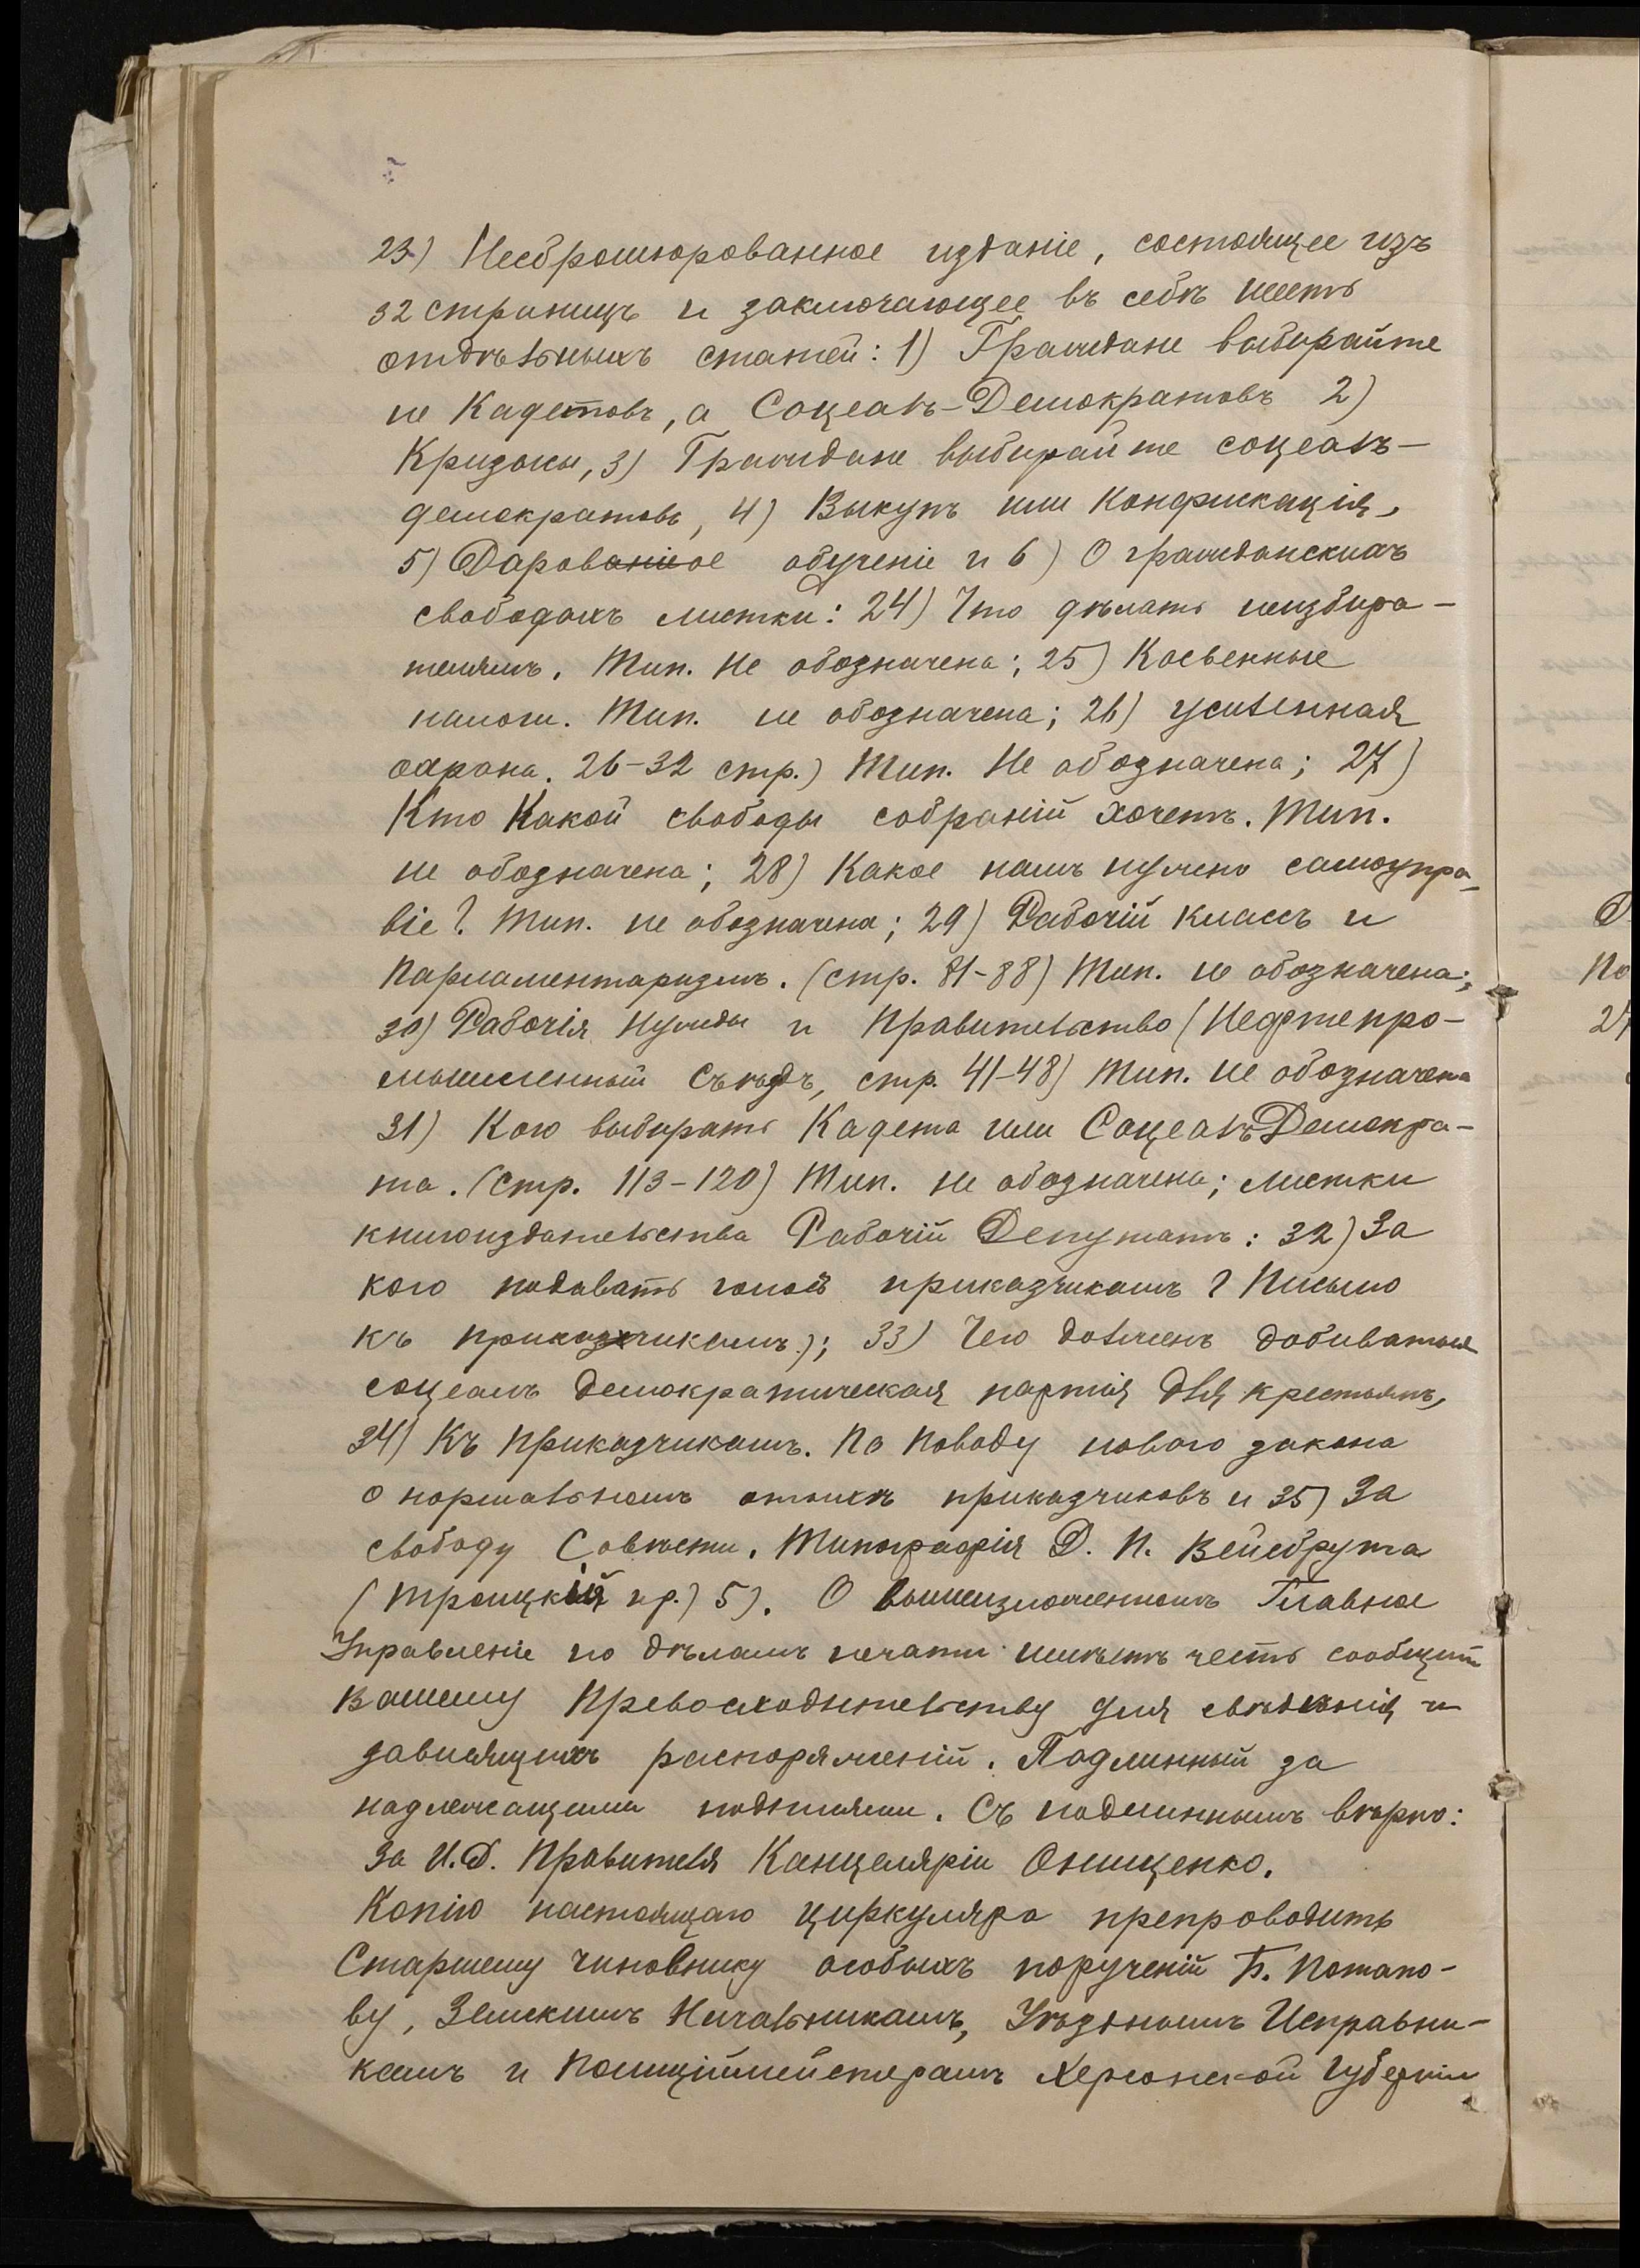 23) Несброшюрованное изданіе, состоящее изъ
32 страницъ и заключающее въ себѣ шесть
отдѣльныхъ статей: 1) Граждане выбирайте
не Кадетовъ, а Соцеалъ-Демократовъ 2)
Кризысы, 3) Граждане выбирайте соцеалъ-
демократовъ, 4) Выкупъ или Конфискація,
5) Даровое обученіе и 6) О гражданскихъ
свободахъ листки: 24) Что дѣлать неизбира-
телямъ. Тип. Не обозначена; 25) Косвенные
налоги. Тип. не обозначена; 26) усиленная
охрана. 26-32 стр.) Тип. Не обозначена; 27)
Кто Какой свободы собраній хочетъ. Тип.
не обозначена; 28) Какое намъ нужно самоупра-
віе? Тип. не обозначена; 29) Рабочій классъ и
Парламентаризмъ. (стр. 81-88) Тип. не обозначена;
30) Рабочія Нужды и Правительство (Нефтепро-
мышленный Съѣздъ, стр. 41-48) Тип. не обозначена
31) Кого выбирать Кадета или Соцеалъ Демокра-
та. (Стр. 113-120) Тип. не обозначена; листки
книгоиздательства Рабочій Депутатъ: 32) За
кого подавать голосъ приказчикамъ? Письмо
къ приказчикамъ); 33) Чего долженъ добиваться
соцеалъ демократическая партія для крестьянъ,
34) Къ Приказчикамъ. По Поводу новаго закона
о нормальномъ отдыхѣ приказчиковъ и 35) За
свободу Совѣсти. Типографія Д. П. Вейсбрута
(Троицкій пр.) 5). О вышеизложенномъ Главное
Управленіе по дѣламъ печати имѣетъ честь сообщить
Вашему Превосходительству для свѣдѣнія и
зависящихъ распоряженій. Подлинный за
надлежащими подписями. Съ подлиннымъ вѣрно:
За И.Д. Правителя Канцеляріи Онищенко.
Копію настоящаго циркуляра препроводить
Старшему чиновнику особыхъ порученій Б. Потапо-
ву, Земскимъ Начальникамъ, Уѣзднымъ Исправни-
камъ и Полиціймейстерамъ Херсонской Губерніи